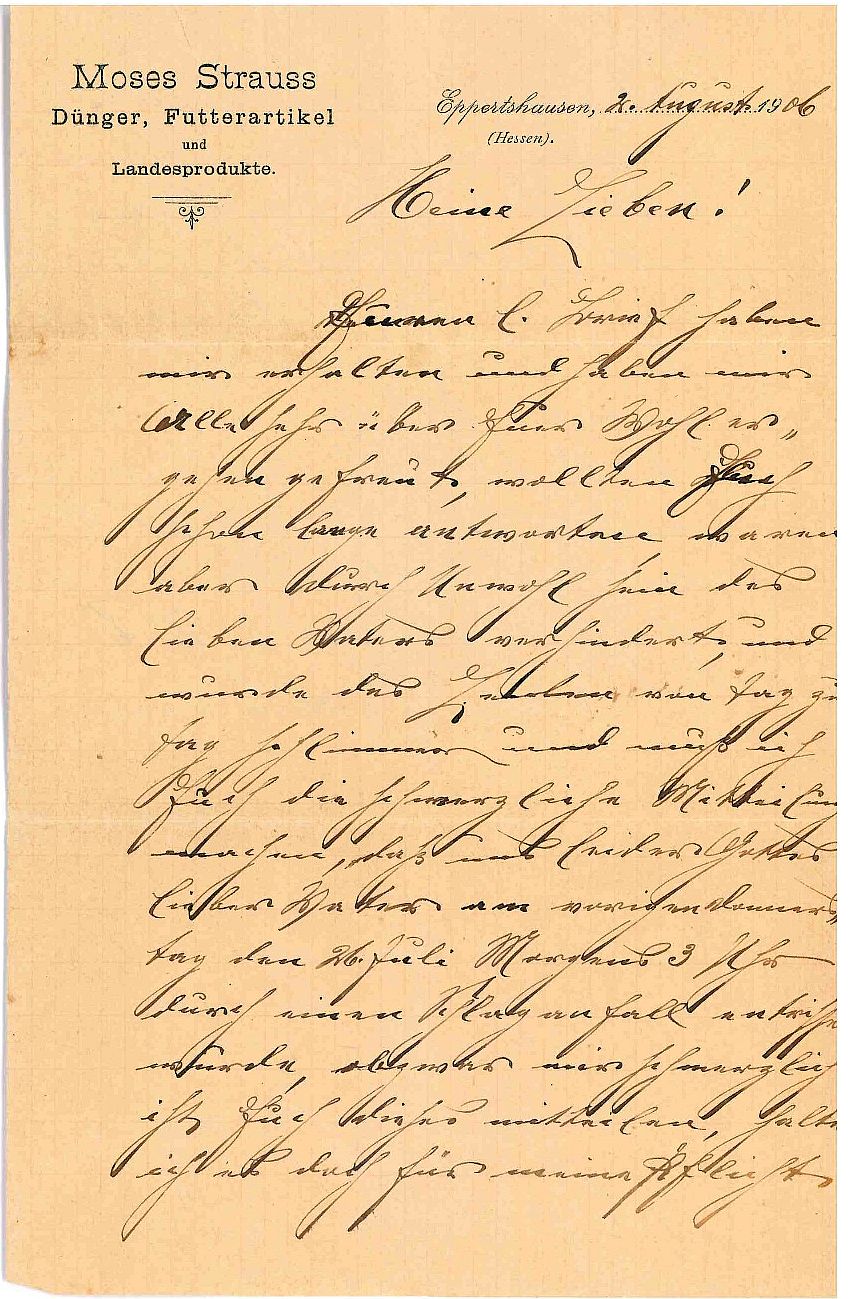 Moses Strauss
Dünger, Futterartikel
und
Landesprodukte.
Eppertshausen, 2. August 1906
(Hessen).
Meine Lieben!
Eueren l. Brief haben
wir erhalten und haben wir
Alle sehr über Euer Wohl er„
gehen gefreut, wollten Euch
schon lange antworten, waren
aber durch Unwohl sein des
lieben Vaters verhindert, und
wurde des Leiden von Tag zu
Tag schlimmer und muß ich
Euch die schmerzliche Mitteilung
machen, daß uns leider Gottes
lieber Vater am vorigen Donners„
tag den 26. Juli Morgens 3 Uhr
durch einen Schlaganfall entrisse
wurde, obzwar mir schmerzlich
ist Euch dieses mitteilen, halte
ich es doch für meine Pflicht